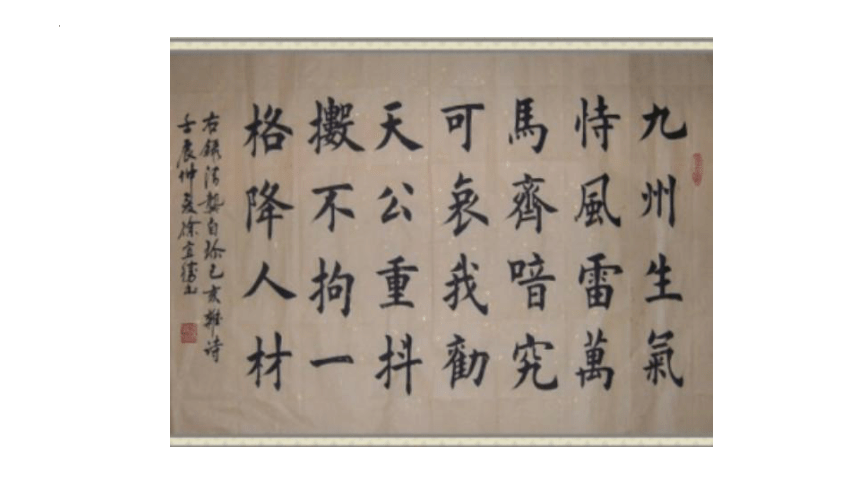 九州生氣
恃風雷萬
馬齊喑究
可哀我勸
天公重抖
擻不拘一
格降人材
右錄清龔自珍己亥雜詩
壬辰仲夏徐宜